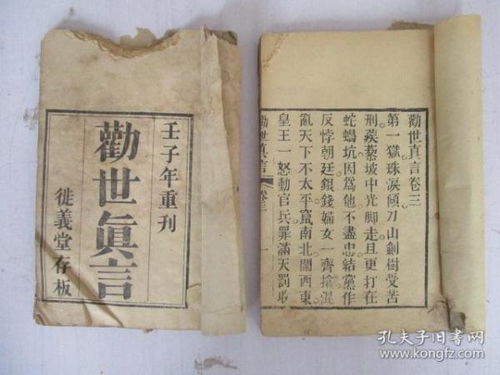 壬子年重刊
勸世眞言
徙義堂存板
勸世真言卷三
第一獄珠淚傾刀山劍樹受苦
刑蒺藜坡中光脚走且更打在
蛇蝎坑因爲他不盡忠結黨作
反悖朝廷銀錢婦女一齊搶混
亂天下不太平竄南北鬧西東
皇王一怒動官兵罪滿天罰収
勸世真言
卷三
孔夫子旧书网
www.kongfz.com